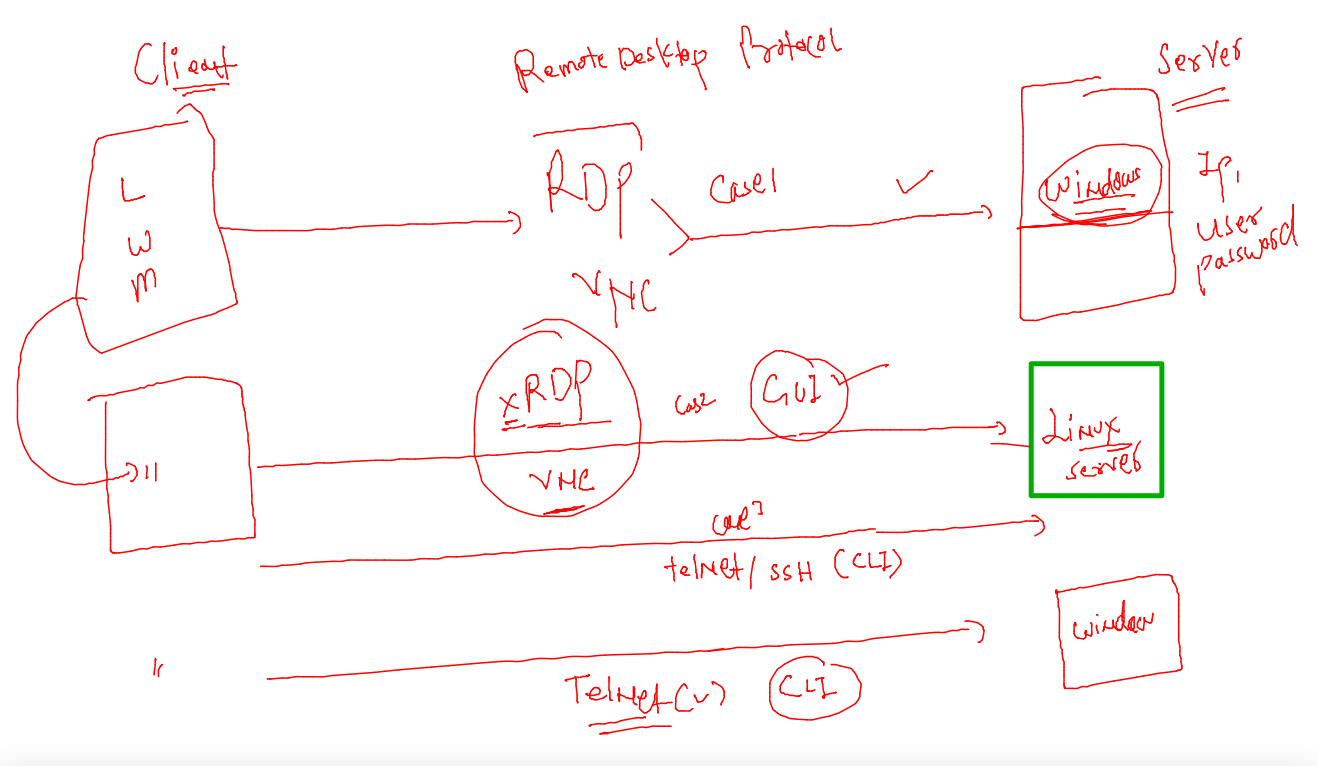 Client
Remote Desktop Protocol
Server
L
W
M
RDP
Case1
Windows
Ip,
User
Password
VNC
xRDP
Case2
GUI
Linux
Server
"
VNC
Case3
telNet/SSH (CLI)
Window
"
TelNet(v)
CLI